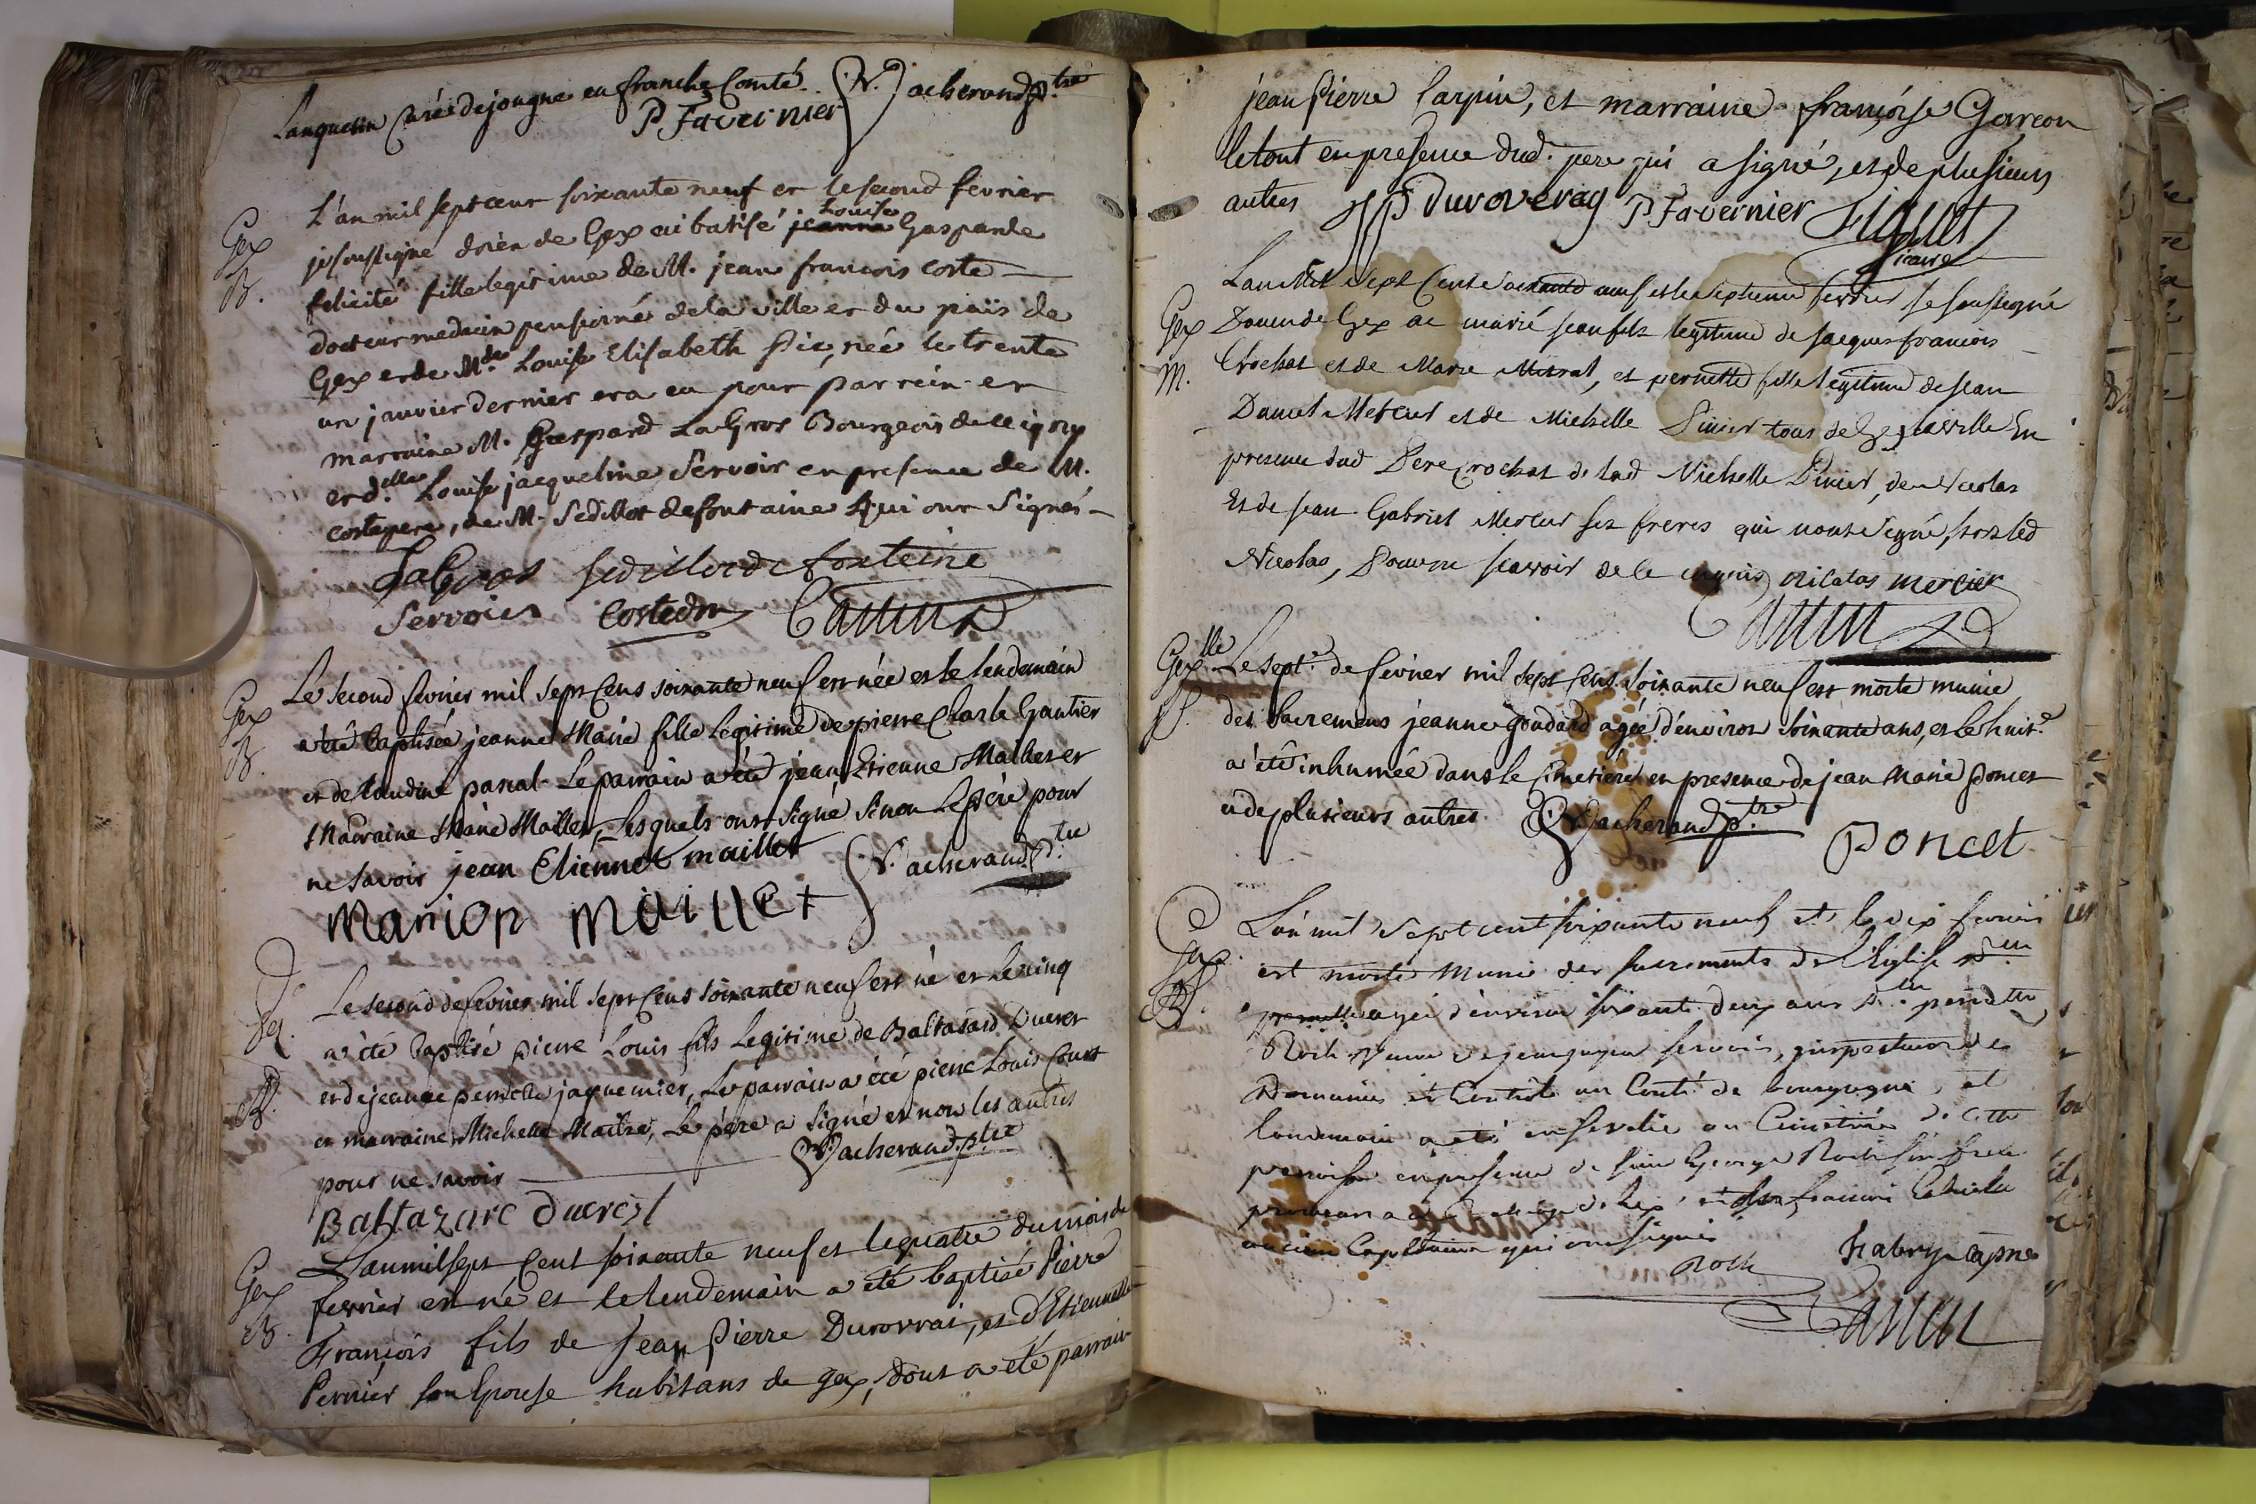 Lanquetin Curé de jougne en franche Comté.
P Favernier Vacherand p.tre
Gex
B.
L'an mil sept cent soixante neuf et le second fevrier
je soussigné doïen de Gex ai batisé jeanne Louise Gasparde
felicité fille legitime de M. jean francois coste
docteur medecin pensioné de la ville et du païs de
Gex et de Md.e Louise Elisabeth Pic, née le trente
un janvier dernier et a eu pour parrein et
marraine M. Gaspard LaGros Bourgeois de
et d.elle Louise jacqueline Servoir en presence de M.
coste pere, de M. Sedillot defontaine qui ont signés
LaGros Sedillot de fonteine
Servoier Coste dm Canin D
Gex
B.
Le second fevrier mil sept cens soixante neuf est née et le lendemain
a été baptisée jeanne Marie fille legitime de pierre Charle Gautier
et de Claudine pascal Le parrain a été jean Etienne Maillet et
Marraine Marie Maillet, Lesquels ont signé sinon Le père pour
ne savoir jean Etienne maillet Vacherand P.tre
Marrion Maillet
Gex
B.
Le second de fevrier mil sept cens soixante neuf est né et le cinq
a été baptisé pierre Louis fils Legitime de Baltasard Ducret
et de jeanne pernette jaquemier, Le parrain a été pierre Louis Court
et marraine Michelle Maitre, Le père a signé et non les autres
pour ne savoir Vacherand p.tre
Baltazarc Ducrest
Gex
B.
L'an mil sept Cent soixante neuf et le quatre du mois de
fevrier est né et le lendemain a été baptisé Pierre
François fils de Jean Pierre Durovrai, et d'Etiennette
Pernier son Epouse habitans de gex, dont a été parrain
jean Pierre Carpin, et marraine françoise Garcon
le tout en presence dud. pere qui a signé, et de plusieurs
autres J P Duroveray P. Favernier
Vicaire
Gex
M.
L'an Mil Sept Cent Soixante neuf et le septieme fevrier Je soussigné
Doien de Gex ai marié Jean fils legitime de Jacques francois
Crochat et de Marie Mitral, et pernette fille legitime de Jean
Daniel Mercier et de Michelle Pinier tous de Gex la ville En
presence dud Pere Crochat de lad Michelle Pinier, de Nicolas
Et de Jean Gabriel Mercier ses freres qui n'ont signé fors led
Nicolas, Pour ne scavoir de ce enquis nicolas mercier
Canin D
Gex lle
S.
Le sept.e de fevrier mil sept cens soixante neuf est morte munie
des Sacremens jeanne goudard agée d'environ soixante ans, et le huit.e
a été inhumée dans le Cimetiere en presence de jean Marie Poncet
et de plusieurs autres. Vacherand p.tre
Poncet
Gex
L'an mil sept cent soixante neuf et le dix fevrier
est morte munie des sacrements de l'Eglise
agée d'environ soixante deux ans pernette
Roch veuve de servoir, inspecteur des
Domaines et Controle au Conté de bourgogne, et
lendemain a été ensevelie au Cimetiere de cette
paroisse en presence de sieur George Roch son frere
francois
ancien Capitaine qui ont signés
Roch fabry capne
Canin